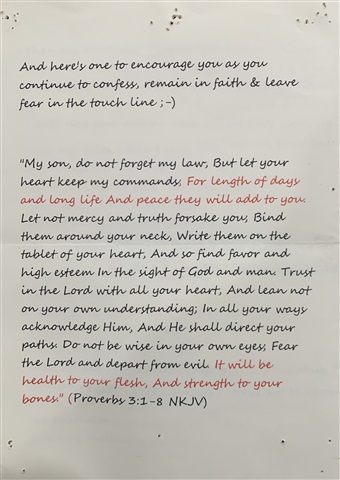 And here's one to encourage you as you
continue to confess, remain in faith & leave
fear in the touch line ;-)
"My son, do not forget my law; But let your
heart keep my commands; For length of days
and long life And peace they will add to you.
Let not mercy and truth forsake you; Bind
them around your neck, Write them on the
tablet of your heart, And so find favor and
high esteem In the sight of God and man. Trust
in the Lord with all your heart, And lean not
on your own understanding; In all your ways
acknowledge Him, And He shall direct your
paths. Do not be wise in your own eyes; Fear
the Lord and depart from evil. It will be
health to your flesh, And strength to your
bones." (Proverbs 3:1-8 NKJV)